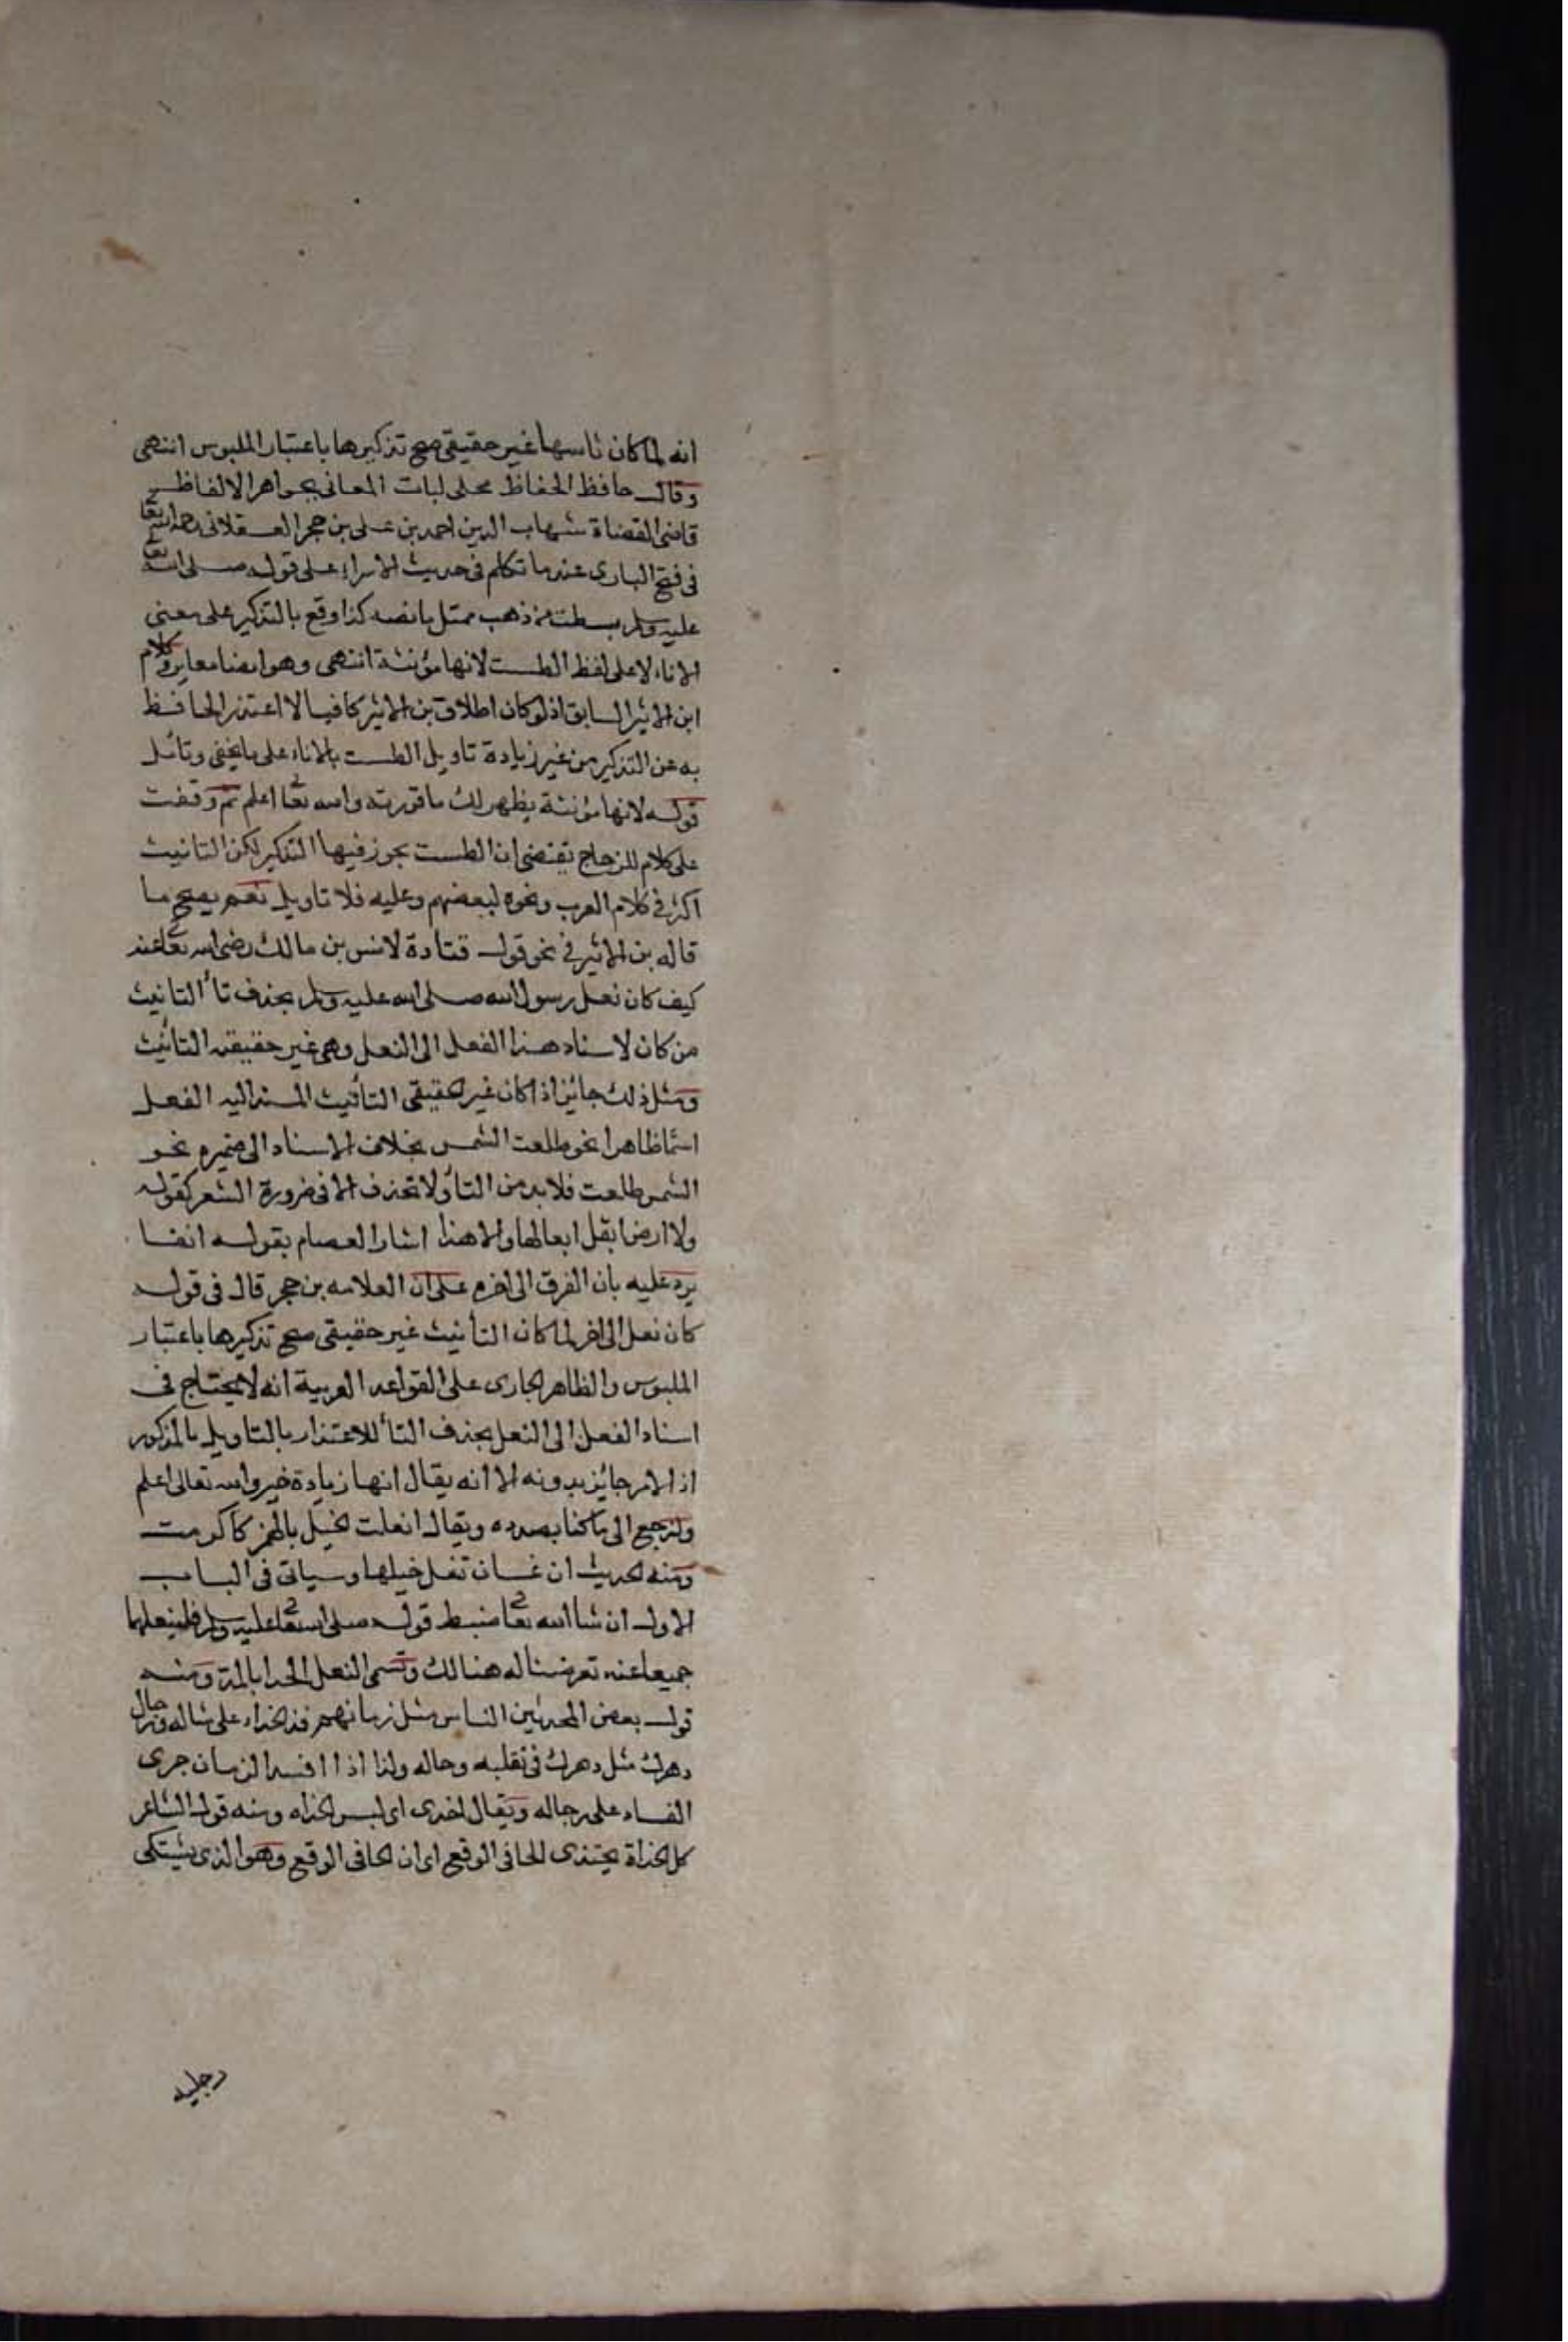 انه لما كان تاسها غير حقيقي صح تذكيرها باعتبار الملبوس انتهى
وقال حافظ الحفاظ محلى لبات المعاني بجواهر الالفاظ
قاضى القضاة شهاب الدين احمد بن على بن حجر العسقلانى رحمه الله تعا
فى فتح البارى عند ما تكلم فى حديث الاسراء على قوله صلى الله تعا
عليه وسلم بطست من ذهب ممتل ما نصه كذا وقع بالتذكير على معنى
الاناء لا على لفظ الطست لانها مؤنثة انتهى وهو ايضا معاير وكلام
ابن الاثير السابق اذ لو كان اطلاق بن الاثير كافيا لا اعتذر الحافظ
به عن التذكير من غير زيادة تاويل الطست بالاناء على ما يخفى وتائل
قوله لانها مؤنثة يظهر لك ما قررته والله تعا اعلم ثم وقفت
على كلام للزجاج يقتضى ان الطست يجوز فيها التذكير لكن التانيث
اكثر فى كلام العرب ونحوه لبعضهم وعليه فلا تاويل نعم يصح ما
قاله بن الاثير فى نحو قول قتادة لانس بن مالك رضى الله تعا عنه
كيف كان نعل رسول الله صلى الله عليه وسلم بحذف تأ التانيث
من كان لاسناد هذا الفعل الى النعل وهى غير حقيقة التانيث
ومثل ذلك جائز اذا كان غير حقيقى التأنيث المسند اليه الفعل
اسما ظاهرا نحو طلعت الشمس بخلاف الاسناد الى ضميره نحو
الشمس طلعت فلا بد من التأ ولا تحذف الا فى ضرورة الشعر كقوله
ولا ارض ابقل ابعالها والا هذا اشار العصام بقوله انفا
يرد عليه بان الفرق الى اخره على ان العلامه بن حجر قال فى قوله
كان نعل الى اخر لما كان التأنيث غير حقيقى صح تذكيرها باعتبار
الملبوس والظاهر الجارى على القواعد العربية انه لا يحتاج فى
اسناد الفعل الى النعل بحذف التأ للاعتذار بالتاويل بالمذكور
اذ الامر جائز بدونه الا انه يقال انها زيادة خير والله تعالى اعلم
ولنرجع الى ما كنا بصدده ويقال انعلت الخيل بالهمز كاكرمت
ومنه الحديث ان غسان تنعل خيلها وسياتى فى الباب
الاول ان شا الله تعا ضبط قوله صلى الله تعا عليه وسلم فلينعلهما
جميعا عند تعرضنا له هنالك وتسمى النعل الحذا بالمد ومنه
قول بعض المحدثين الناس مثل زمانهم قد الحذاء على مثاله ورجال
دهرك مثل دهرك فى تقلبه وحاله ولذا اذا افسد الزمان جرى
الفساد على رجاله ويقال احتذى اى لبس الحذاه ومنه قول الشاعر
كل الحذاة يحتذى الحافى الوقع اى ان الحافى الوقع وهو الذى يشتكى
رجليه